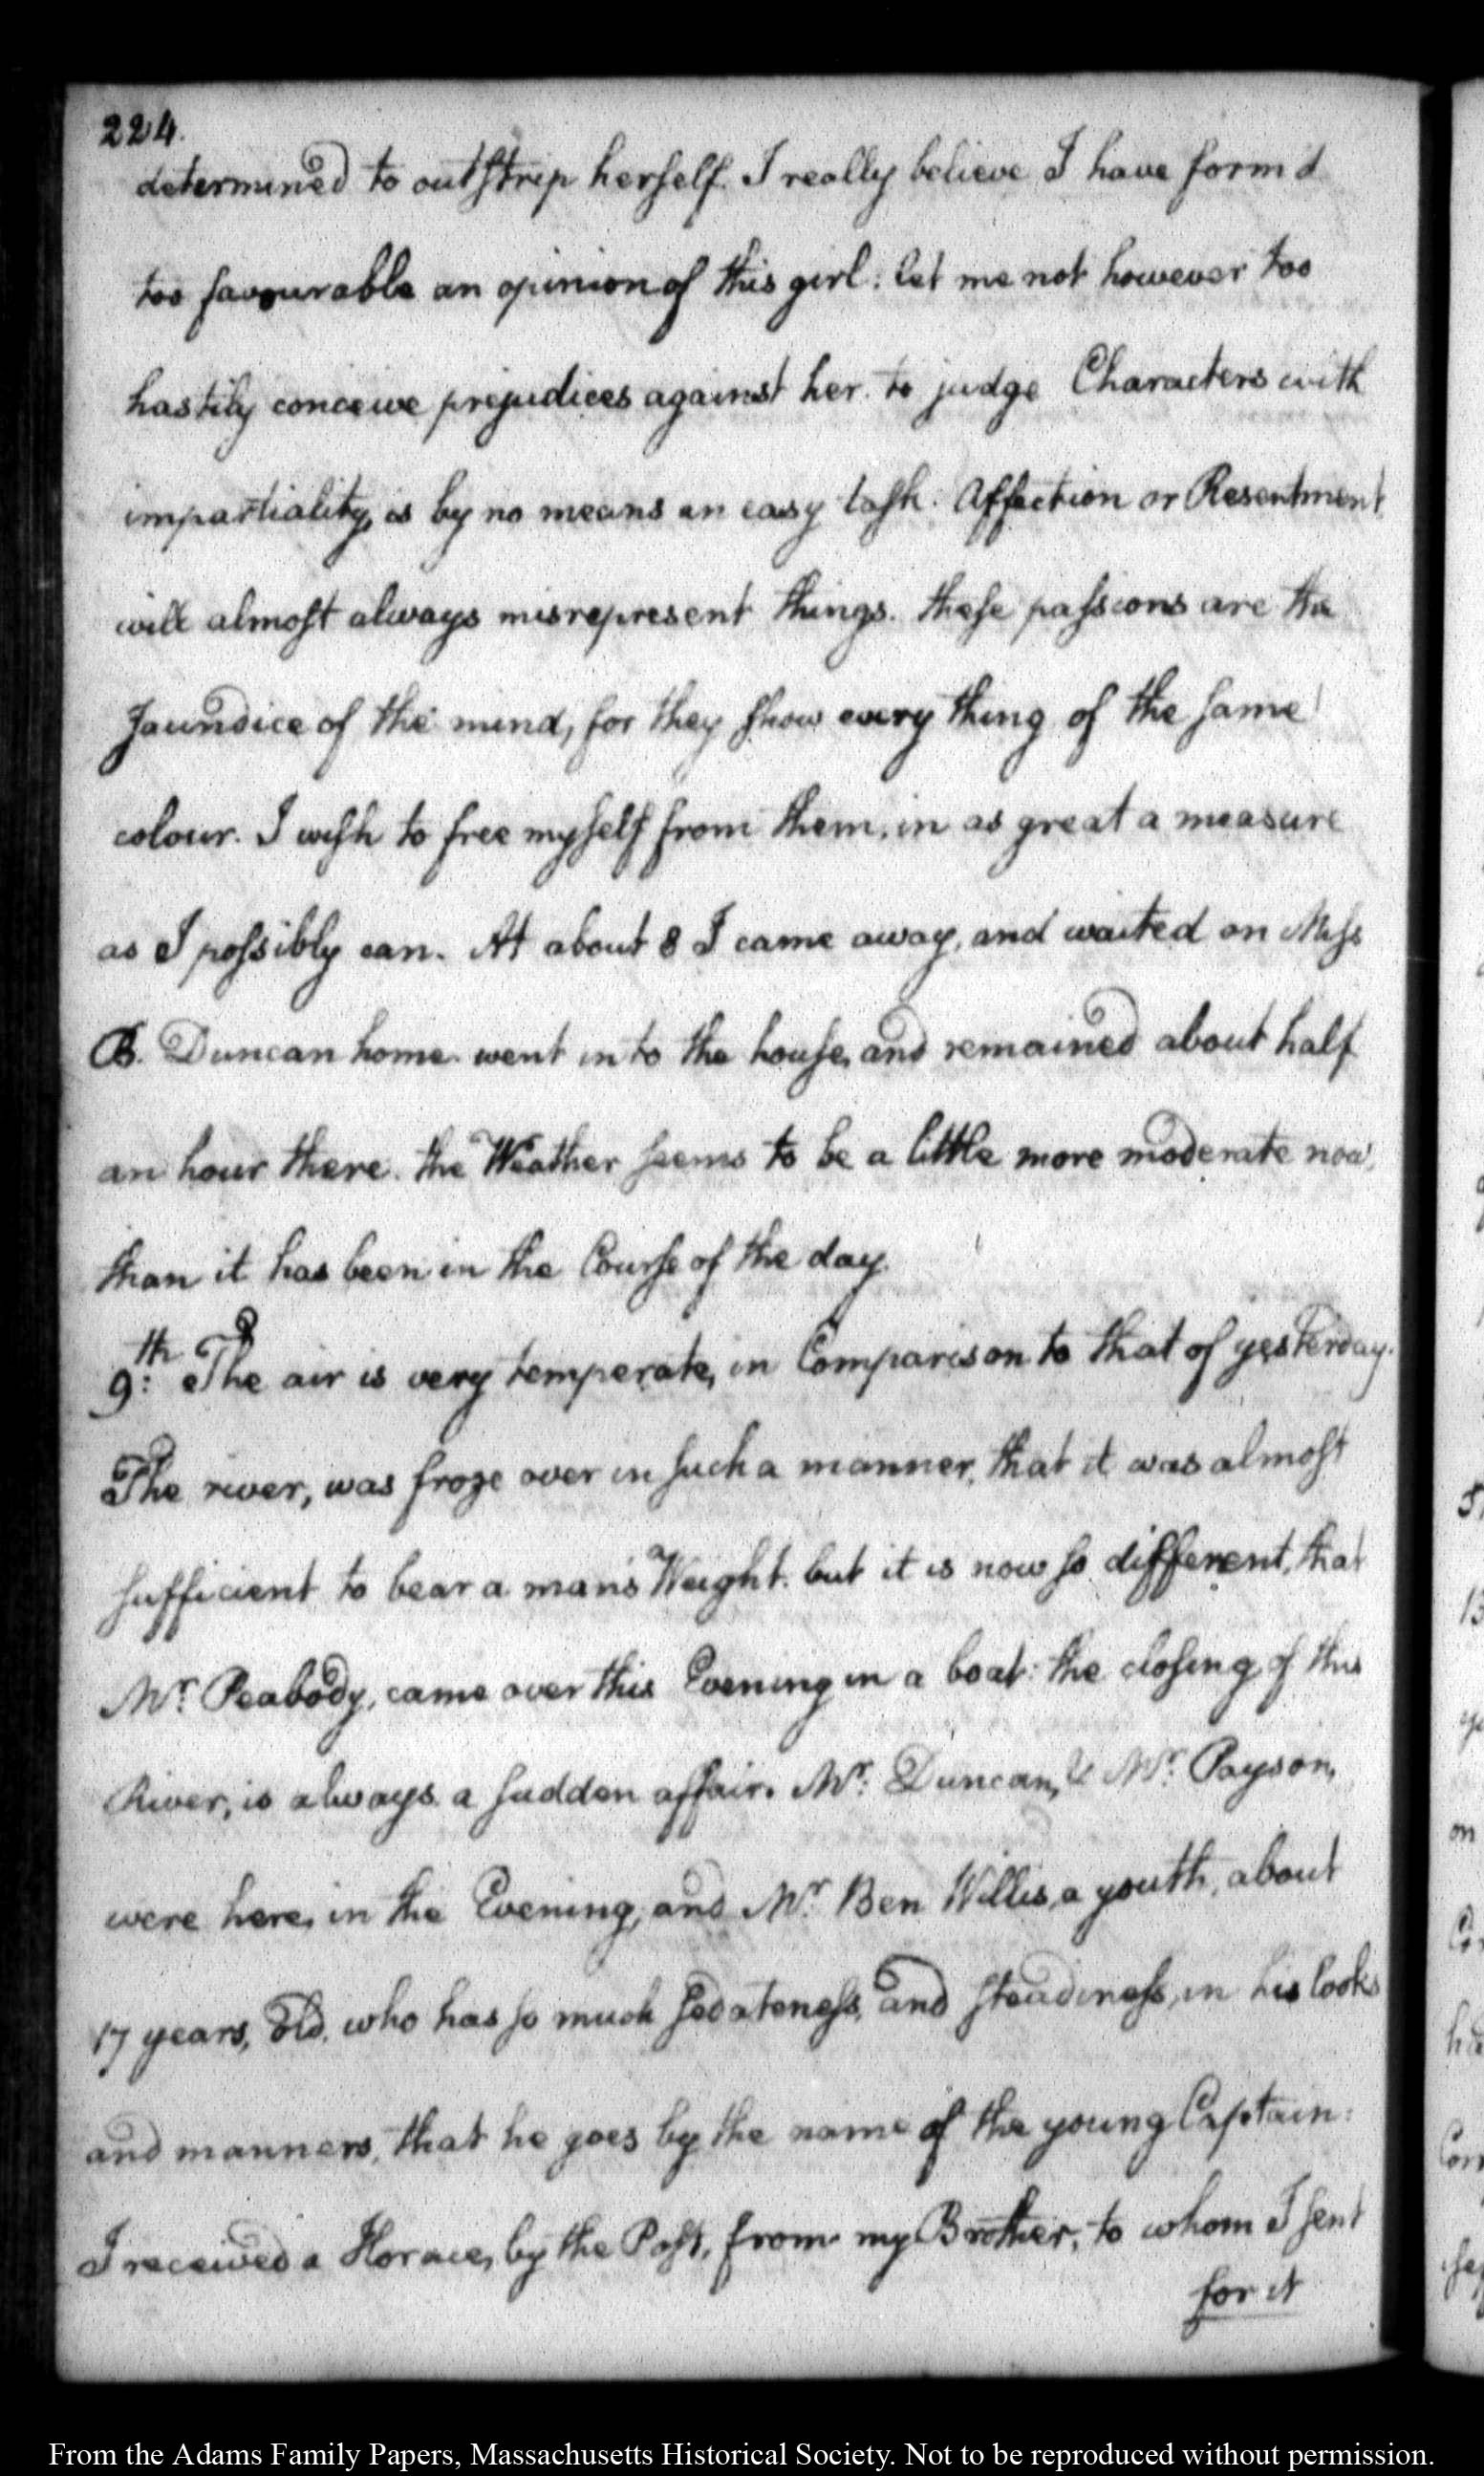 224.
determined to outstrip herself. I really believe I have form'd
too favourable an opinion of this girl: let me not however too
hastily conceive prejudices against her. to judge Characters with
impartiality, is by no means an easy task. Affection or Resentment,
will almost always misrepresent things. these passions are the
Jaundice of the mind, for they show every thing of the same
colour. I wish to free myself from them, in as great a measure
as I possibly can. At about 8 I came away, and waited on Miss
B. Duncan home. went in to the house, and remained about half
an hour there. the Weather seems to be a little more moderate now,
than it has been in the Course of the day.
9th: The air is very temperate, in Comparison to that of yesterday.
The river, was froze over in such a manner, that it was almost
sufficient to bear a man's Weight. but it is now so different, that
Mr. Peabody, came over this Evening in a boat: the closing of this
River, is always a sudden affair. Mr: Duncan, & Mr: Payson,
were here, in the Evening, and Mr. Ben Willis, a youth, about
17 years, old, who has so much sedateness, and steadiness, in his looks
and manners, that he goes by the name of the young Captain:
I received a Horace, by the Post, from my Brother, to whom I sent
for it
From the Adams Family Papers, Massachusetts Historical Society. Not to be reproduced without permission.